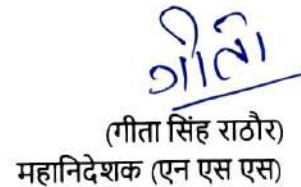 गीता
(गीता सिंह राठौर)
महानिदेशक (एन एस एस)